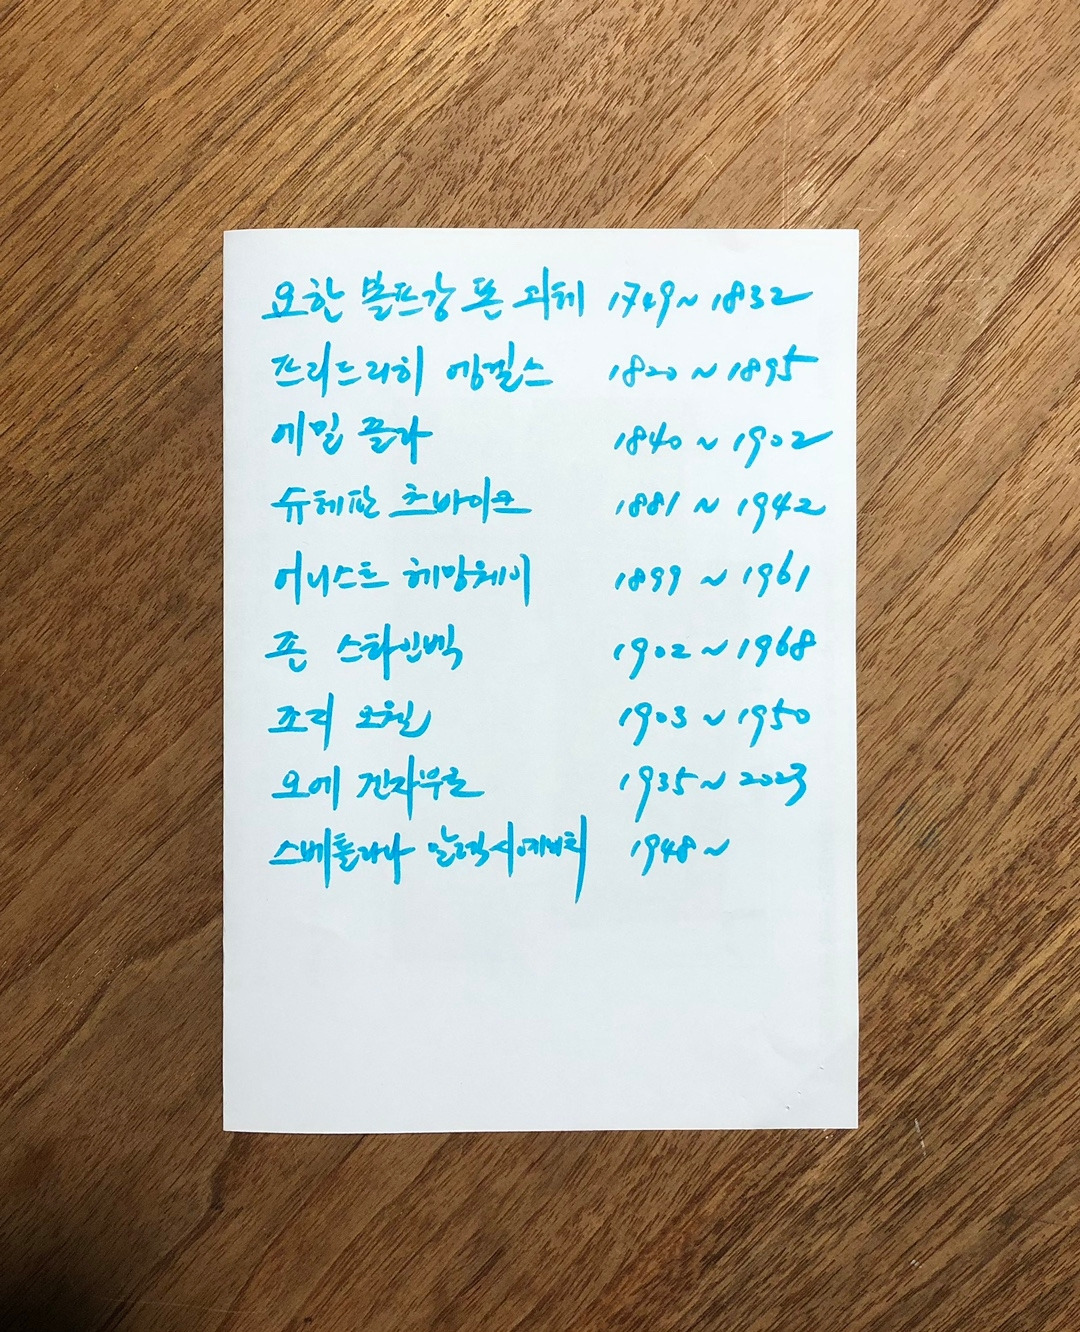 요한 볼프강 폰 괴테 1749~1832
프리드리히 엥겔스 1820~1895
에밀 졸라 1840~1902
슈테판 츠바이크 1881~1942
어니스트 헤밍웨이 1899~1961
존 스타인벡 1902~1968
조지 오웰 1903~1950
오에 겐자부로 1935~2023
스베틀라나 알렉시예비치 1948~